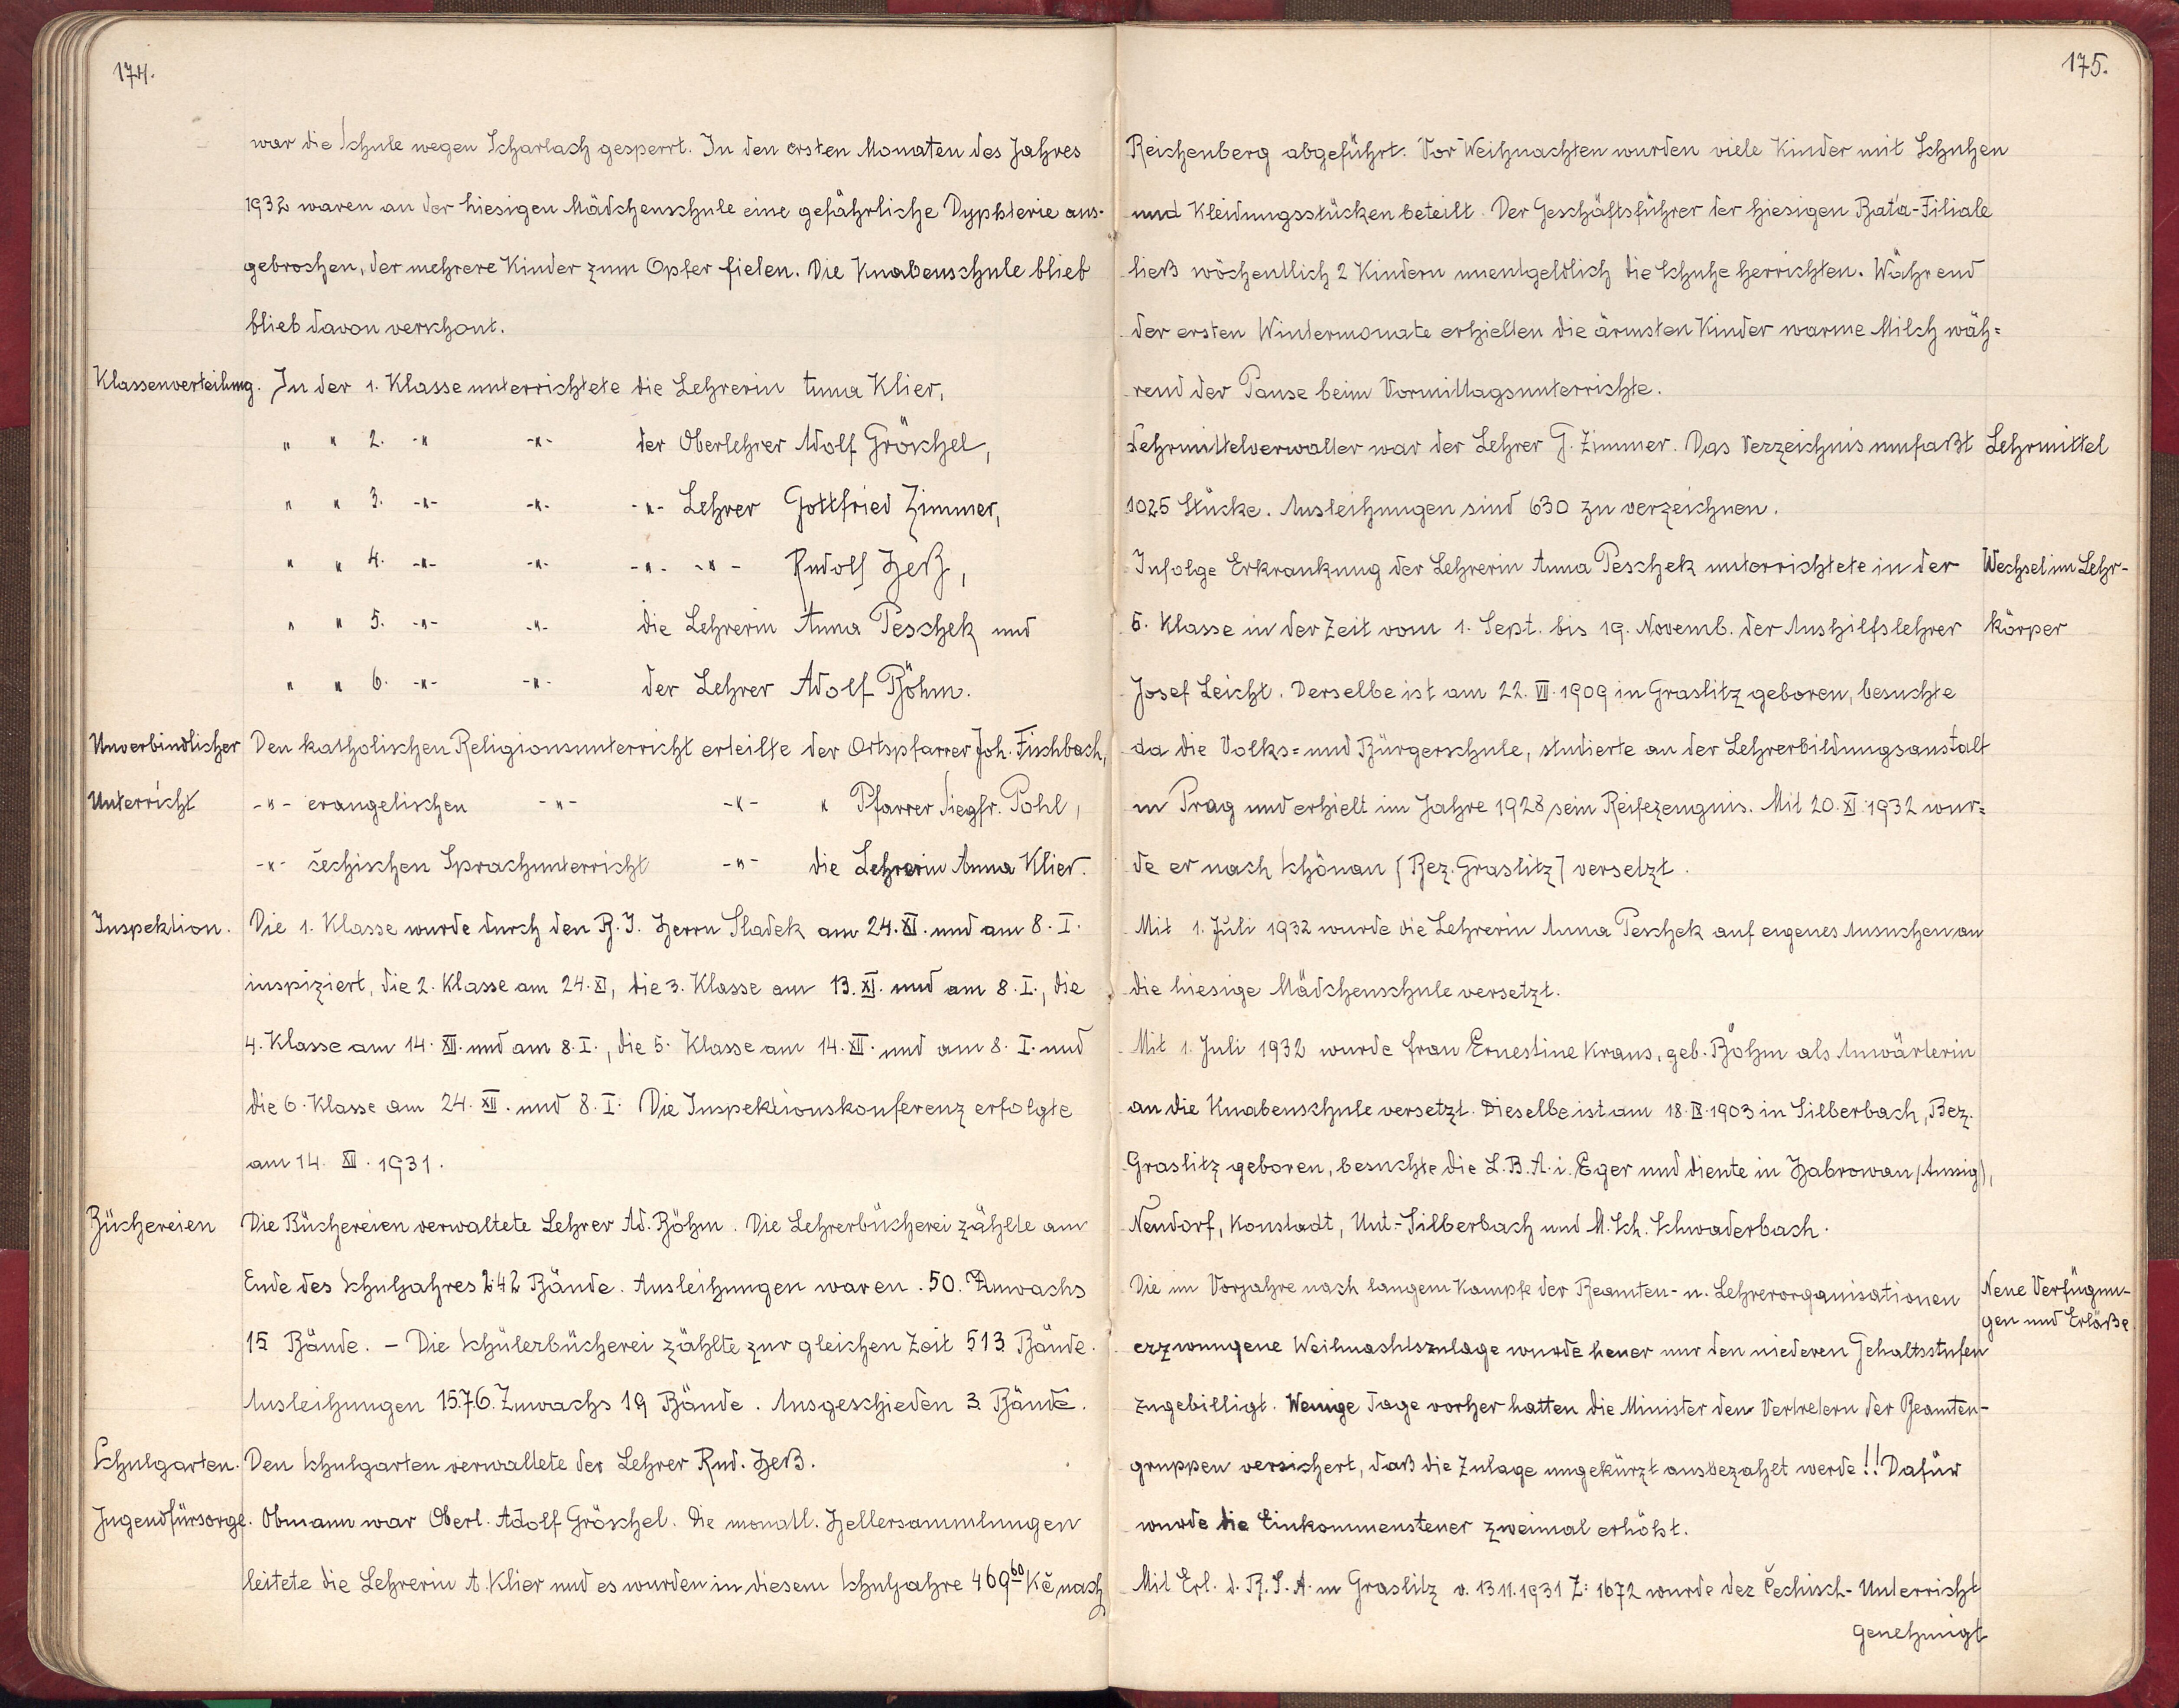 174.
war die Schule wegen Scharlach gesperrt. In den ersten Monaten des Jahres
1932 waren an der hiesigen Mädchenschule eine gefährliche Dyphterie aus-
gebrochen, der mehrere Kinder zum Opfer fielen. Die Knabenschule blieb
blieb davon verschont.
Klassenverteilung. In der 1. Klasse unterrichtete die Lehrerin Anna Klier,
" " 2. -"- -"- der Oberlehrer Adolf Gröschel,
" " 3. -"- -"- -"- Lehrer Gottfried Zimmer,
" " 4. -"- -"- -"- -"- Rudolf Heß,
" " 5. -"- -"- die Lehrerin Anna Peschek und
" " 6. -"- -"- der Lehrer Adolf Böhm.
Unverbindlicher Den katholischen Religionsunterricht erteilte der Ortspfarrer Joh. Fischbach,
Unterricht -"- evangelischen -"- -"- " Pfarrer Siegfr. Pohl,
-"- čechischen Sprachunterricht -"- die Lehrerin Anna Klier.
Inspektion. Die 1. Klasse wurde durch den B. I. Herrn Sladek am 24. XI. und am 8. I.
inspiziert, die 2. Klasse am 24. XI, die 3. Klasse am 13. XI. und am 8. I., die
4. Klasse am 14. XII. und am 8. I., die 5. Klasse am 14. XII. und am 8. I. und
die 6. Klasse am 24. XII. und 8. I. Die Inspektionskonferenz erfolgte
am 14. XII. 1931.
Büchereien Die Büchereien verwaltete Lehrer Ad. Böhm. Die Lehrerbücherei zählte am
Ende des Schuljahres 242 Bände. Ausleihungen waren . 50. Zuwachs
15 Bände. - Die Schülerbücherei zählte zur gleichen Zeit 513 Bände.
Ausleihungen 1576. Zuwachs 19 Bände. Ausgeschieden 3 Bände.
Schulgarten. Den Schulgarten verwaltete der Lehrer Rud. Heß.
Jugendfürsorge. Obmann war Oberl. Adolf Gröschel. Die monatl. Hellersammlungen
leitete die Lehrerin A. Klier und es wurden in diesem Schuljahre 469 60 Kč nach
175.
Reichenberg abgeführt. Vor Weihnachten wurden viele Kinder mit Schuhen
und Kleidungsstücken beteilt. Der Geschäftsführer der hiesigen Bat'a-Filiale
ließ wöchentlich 2 Kindern unentgeldlich die Schuhe herrichten. Während
der ersten Wintermonate erhielten die ärmsten Kinder warme Milch wäh=
rend der Pause beim Vormittagsunterrichte.
Lehrmittelverwalter war der Lehrer G. Zimmer. Das Verzeichnis umfaßt Lehrmittel
1025 Stücke. Ausleihungen sind 630 zu verzeichnen.
Infolge Erkrankung der Lehrerin Anna Peschek unterrichtete in der Wechsel im Lehr-
5. Klasse in der Zeit vom 1. Sept. bis 19. Novemb. der Aushilfslehrer körper
Josef Leicht. Derselbe ist am 22. VII. 1909 in Graslitz geboren, besuchte
da die Volks= und Bürgerschule, studierte an der Lehrerbildungsanstalt
in Prag und erhielt im Jahre 1928 sein Reifezeugnis. Mit 20. XI. 1932 wur=
de er nach Schönau (Bez. Graslitz) versetzt.
Mit 1. Juli 1932 wurde die Lehrerin Anna Peschek auf eigenes Ansuchen an
die hiesige Mädchenschule versetzt.
Mit 1. Juli 1932 wurde Frau Ernestine Kraus, geb. Böhm als Anwärterin
an die Knabenschule versetzt. Dieselbe ist am 18. IX. 1903 in Silberbach, Bez.
Graslitz geboren, besuchte die L. B. A. i. Eger und diente in Habrowan (Aussig),
Neudorf, Konstadt, Unt.-Silberbach und M. Sch. Schwaderbach.
Die im Vorjahre nach langem Kampfe der Beamten- u. Lehrerorganisationen Neue Verfügun-
gen und Erläße
erzwungene Weihnachtszulage wurde heuer nur den niederen Gehaltsstufen
zugebilligt. Wenige Tage vorher hatten die Minister den Vertretern der Beamten-
gruppen versichert, daß die Zulage ungekürzt ausbezahlt werde!! Dafür
wurde die Einkommensteuer zweimal erhöht.
Mit Erl. d. B. S. A. in Graslitz v. 13.11.1931 Z: 1672 wurde der Čechisch-Unterricht
genehmigt